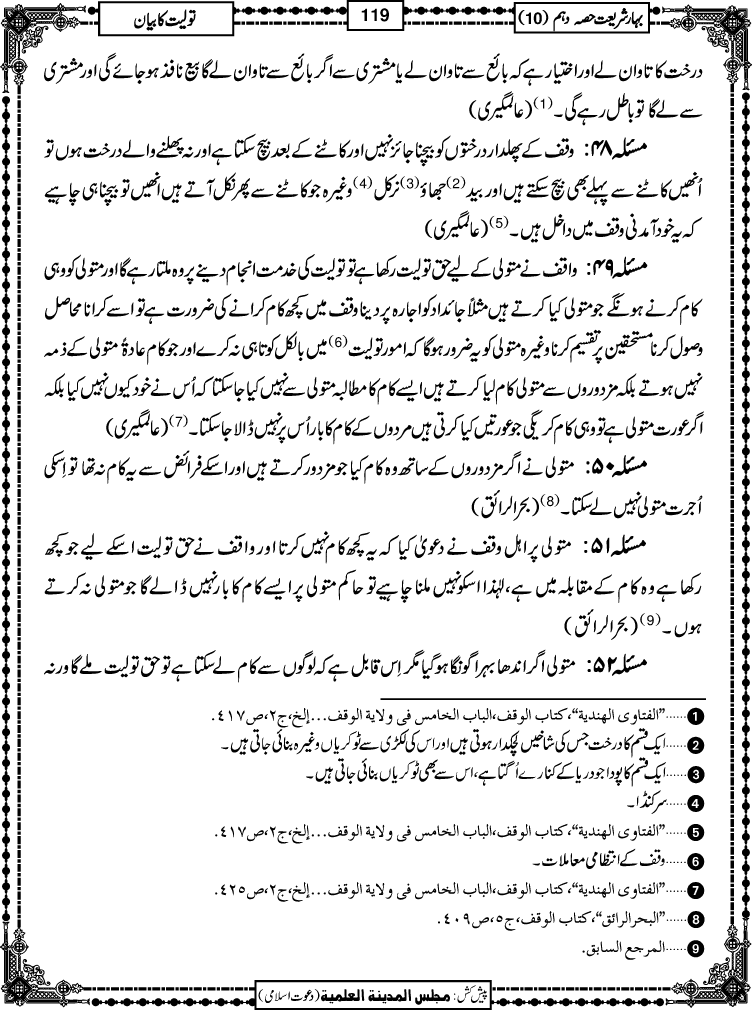 بہار شریعت حصہ دہم (10)
119
تولیت کا بیان
درخت کا تاوان لے اور اختیار ہے کہ بائع سے تاوان لے یا مشتری سے اگر بائع سے تاوان لے گا بیع نافذ ہو جائے گی اور مشتری
سے لے گا تو باطل رہے گی۔(1) (عالمگیری)
مسئلہ ۴۸: وقف کے پھلدار درختوں کو بیچنا جائز نہیں اور کاٹنے کے بعد بیچ سکتا ہے اور نہ پھلنے والے درخت ہوں تو
اُنھیں کاٹنے سے پہلے بھی بیچ سکتے ہیں اور بید(2) جھاؤ(3) نرکل(4) وغیرہ جو کاٹنے سے پھر نکل آتے ہیں انھیں تو بیچنا ہی چاہیے
کہ یہ خود آمدنی وقف میں داخل ہیں۔(5) (عالمگیری)
مسئلہ ۴۹: واقف نے متولی کے لیے حق تولیت رکھا ہے تو تولیت کی خدمت انجام دینے پر وہ ملتا رہے گا اور متولی کو وہی
کام کرنے ہونگے جو متولی کیا کرتے ہیں مثلاً جائداد کو اجارہ پر دینا وقف میں کچھ کام کرانے کی ضرورت ہے تو اسے کرانا محاصل
وصول کرنا مستحقین پر تقسیم کرنا وغیرہ متولی کو یہ ضرور ہوگا کہ امورِ تولیت(6) میں بالکل کوتاہی نہ کرے اور جو کام عادۃً متولی کے ذمہ
نہیں ہوتے بلکہ مزدوروں سے متولی کام لیا کرتے ہیں ایسے کام کا مطالبہ متولی سے نہیں کیا جا سکتا کہ اُس نے خود کیوں نہیں کیا بلکہ
اگر عورت متولی ہے تو وہی کام کریگی جو عورتیں کیا کرتی ہیں مردوں کے کام کا بار اُس پر نہیں ڈالا جا سکتا۔(7) (عالمگیری)
مسئلہ ۵۰: متولی نے اگر مزدوروں کے ساتھ وہ کام کیا جو مزدور کرتے ہیں اور اسکے فرائض سے یہ کام نہ تھا تو اِسکی
اُجرت متولی نہیں لے سکتا۔(8) (بحر الرائق)
مسئلہ ۵۱: متولی پر اہل وقف نے دعویٰ کیا کہ یہ کچھ کام نہیں کرتا اور واقف نے حق تولیت اسکے لیے جو کچھ
رکھا ہے وہ کام کے مقابلہ میں ہے، لہٰذا اسکو نہیں ملنا چاہیے تو حاکم متولی پر ایسے کام کا بار نہیں ڈالے گا جو متولی نہ کرتے
ہوں۔(9) (بحر الرائق)
مسئلہ ۵۲: متولی اگر اندھا بہرا گونگا ہو گیا مگر اِس قابل ہے کہ لوگوں سے کام لے سکتا ہے تو حق تولیت ملے گا ورنہ
1 ......”الفتاوی الھندیة“، کتاب الوقف، الباب الخامس فی ولایة الوقف...إلخ، ج٢، ص٤١٧.
2 ......ایک قسم کا درخت جس کی شاخیں لچکدار ہوتی ہیں اور اس کی لکڑی سے ٹوکریاں وغیرہ بنائی جاتی ہیں۔
3 ......ایک قسم کا پودا جو دریا کے کنارے اُگتا ہے، اس سے بھی ٹوکریاں بنائی جاتی ہیں۔
4 ......سرکنڈا۔
5 ......”الفتاوی الھندیة“، کتاب الوقف، الباب الخامس فی ولایة الوقف...إلخ، ج٢، ص٤١٧.
6 ......وقف کے انتظامی معاملات۔
7 ......”الفتاوی الھندیة“، کتاب الوقف، الباب الخامس فی ولایة الوقف...إلخ، ج٢، ص٤٢٥.
8 ......”البحر الرائق“، کتاب الوقف، ج٥، ص٤٠٩.
9 ......المرجع السابق.
پیش کش: مجلس المدینة العلمیة (دعوت اسلامی)